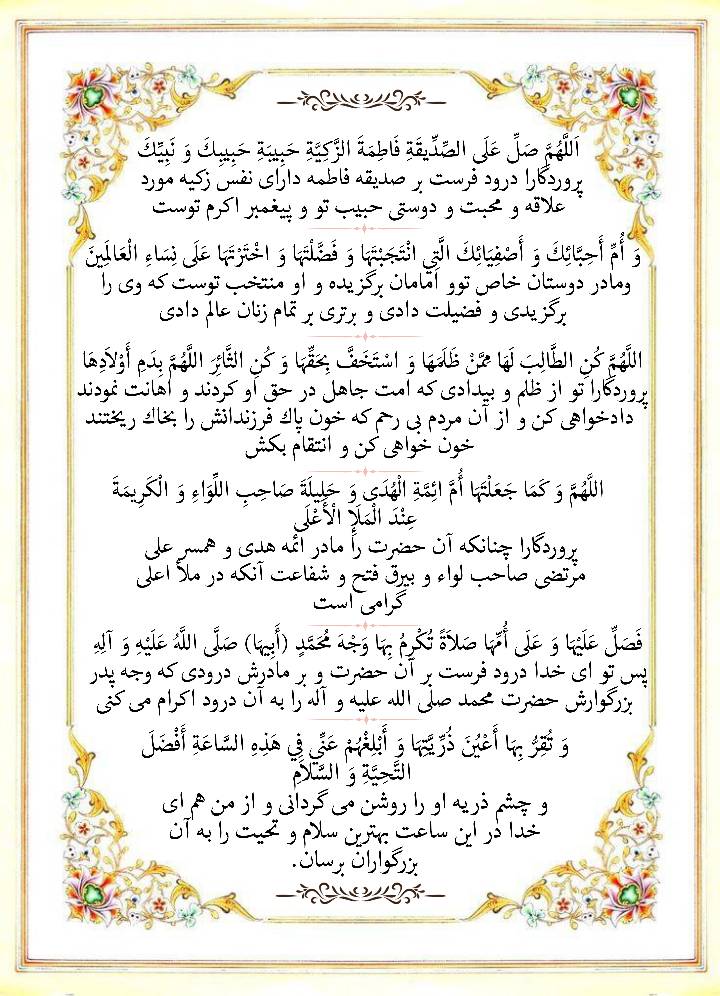 اَللَّهُمَّ صَلِّ عَلَى الصِّدِّيقَةِ فَاطِمَةَ الزَّكِيَّةِ حَبِيبَةِ حَبِيبِكَ وَ نَبِيِّكَ
پروردگارا درود فرست بر صدیقه فاطمه دارای نفس زکیه مورد
علاقه و محبت و دوستی حبیب تو و پیغمبر اکرم توست
وَ أُمِّ أَحِبَّائِكَ وَ أَصْفِيَائِكَ الَّتِي انْتَجَبْتَهَا وَ فَضَّلْتَهَا وَ اخْتَرْتَهَا عَلَى نِسَاءِ الْعَالَمِينَ
ومادر دوستان خاص توو امامان برگزیده و او منتخب توست که وی را
برگزیدی و فضیلت دادی و برتری بر تمام زنان عالم دادی
اللَّهُمَّ كُنِ الطَّالِبَ لَهَا مِمَّنْ ظَلَمَهَا وَ اسْتَخَفَّ بِحَقِّهَا وَ كُنِ الثَّائِرَ اللَّهُمَّ بِدَمِ أَوْلاَدِهَا
پروردگارا تو از ظلم و بیدادی که امت جاهل در حق او کردند و اهانت نمودند
دادخواهی کن و از آن مردم بی رحم که خون پاك فرزندانش را بخاك ریختند
خون خواهی کن و انتقام بکش
اللَّهُمَّ وَ كَمَا جَعَلْتَهَا أُمَّ ائِمَّةِ الْهُدَى وَ حَلِيلَةَ صَاحِبِ اللِّوَاءِ وَ الْكَرِيمَةَ
عِنْدَ الْمَلَإِ الْأَعْلَى
پروردگارا چنانکه آن حضرت را مادر ائمه هدی و همسر علی
مرتضی صاحب لواء و بیرق فتح و شفاعت آنکه در ملأ اعلی
گرامی است
فَصَلِّ عَلَيْهَا وَ عَلَى أُمِّهَا صَلاَةً تُكْرِمُ بِهَا وَجْهَ مُحَمَّدٍ (أَبِيهَا) صَلَّى اللَّهُ عَلَيْهِ وَ آلِهِ
پس تو ای خدا درود فرست بر آن حضرت و بر مادرش درودی که وجه پدر
بزرگوارش حضرت محمد صلی الله علیه و آله را به آن درود اکرام می کنی
وَ تُقِرُّ بِهَا أَعْيُنَ ذُرِّيَّتِهَا وَ أَبْلِغْهُمْ عَنِّي فِي هَذِهِ السَّاعَةِ أَفْضَلَ
التَّحِيَّةِ وَ السَّلاَمِ
و چشم ذریه او را روشن می گردانی و از من هم ای
خدا در این ساعت بهترین سلام و تحیت را به آن
بزرگواران برسان.